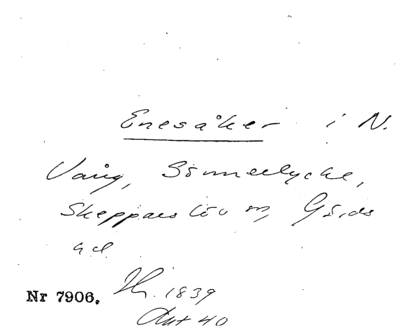 Enesåker i N.
Vång, Sönnerlycke,
Skeppars löv m, Gärds
hd.
Nr 7906. Hi. 1839
Akt 40